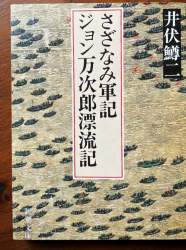 井伏鱒二
さざなみ軍記
ジョン万次郎漂流記